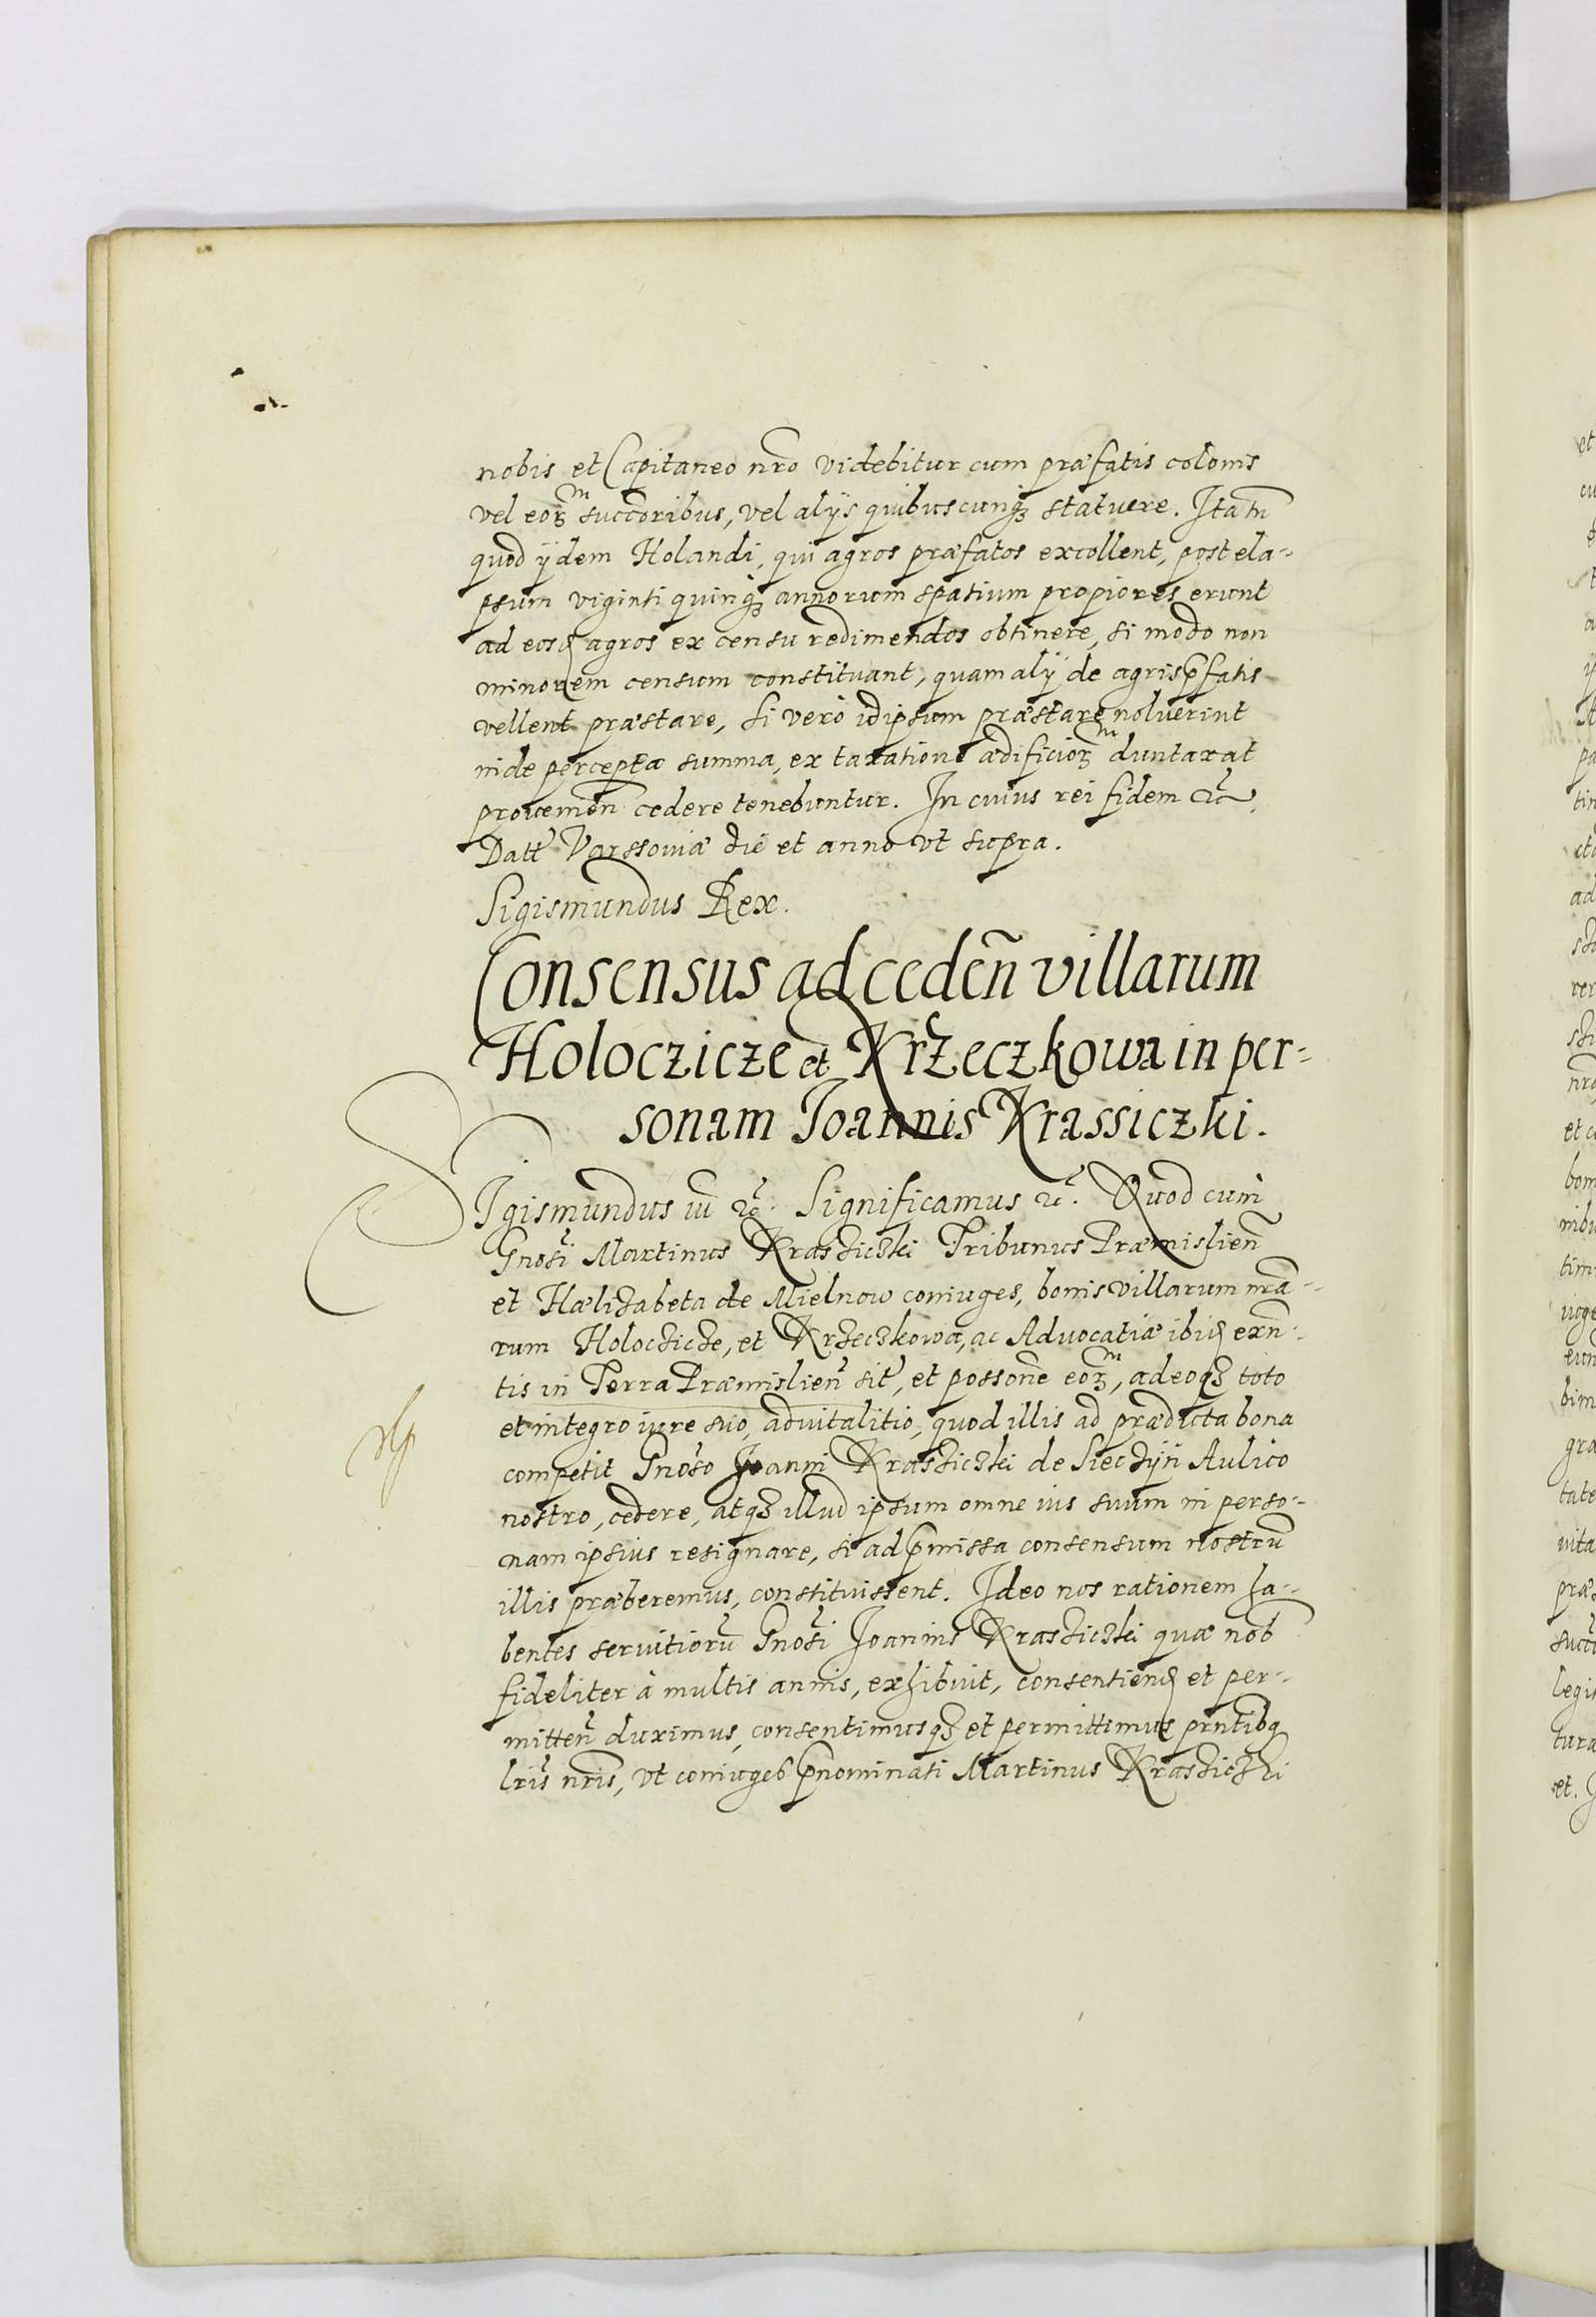 nobis et Capitaneo nr̃o videbitur cum præfatis colonis
vel eoꝝm succoribus, vel alijs quibuscunqꝫ statuere. Ita tñ
quod ijdem Holandi, qui agros præfatos excollent, post ela-
psum viginti quinqꝫ annorum spatium propiores erunt
ad eosd agros ex censu redimendos obtinere, si modo non
minorem censum constituant, quam alij de agris p̃fatis
vellent præstare, si verò idipsum præstare noluerint
inde percepta summa, ex taxatione ædificioꝝm duntaxat
prouenien̄ cedere tenebuntur. In cuius rei fidem &c̃.
Datt̃ Varssouiæ die et anno vt supra.
Sigismundus Rex.
Consensus ad ceden̄ villarum
Holoczicze et Krzeczkowa in per-
sonam Ioannis Krassiczki.
SIgismundus iii &c̃. Significamus &c̃. Quod cum
Gnosi Martinus Krassiczki Tribunus Præmislien̄
et Hælizabeta de Mielnow coniuges, bonis villarum nr̃a-
rum Holoczicze, et Krzeczkowa, ac Advocatiæ ibid exn̄-
tis in Terra Præmislien̄ sit̃, et possone eoꝝm, adeoqꝫ toto
et integro iure suo, aduitalitio, quod illis ad prædicta bona
competit Gnoso Joanni Krassiczki de Sieczyn Aulico
nostro, cedere, atqꝫ illud ipsum omne ius suum in perso-
nam ipsius resignare, si ad p̃missa consensum nostrũ
illis præberemus, constituissent. Ideo nos rationem ha-
bentes seruitiorũ Gnosi Ioannis Krassiczki quæ nob
fideliter à multis annis, exhibuit, consentiend et per-
mitten̄ duximus, consentimusqꝫ et permittimus pn̄tibq
lr̃is nr̃is, vt coniuges p̃nominati Martinus Krassiczki